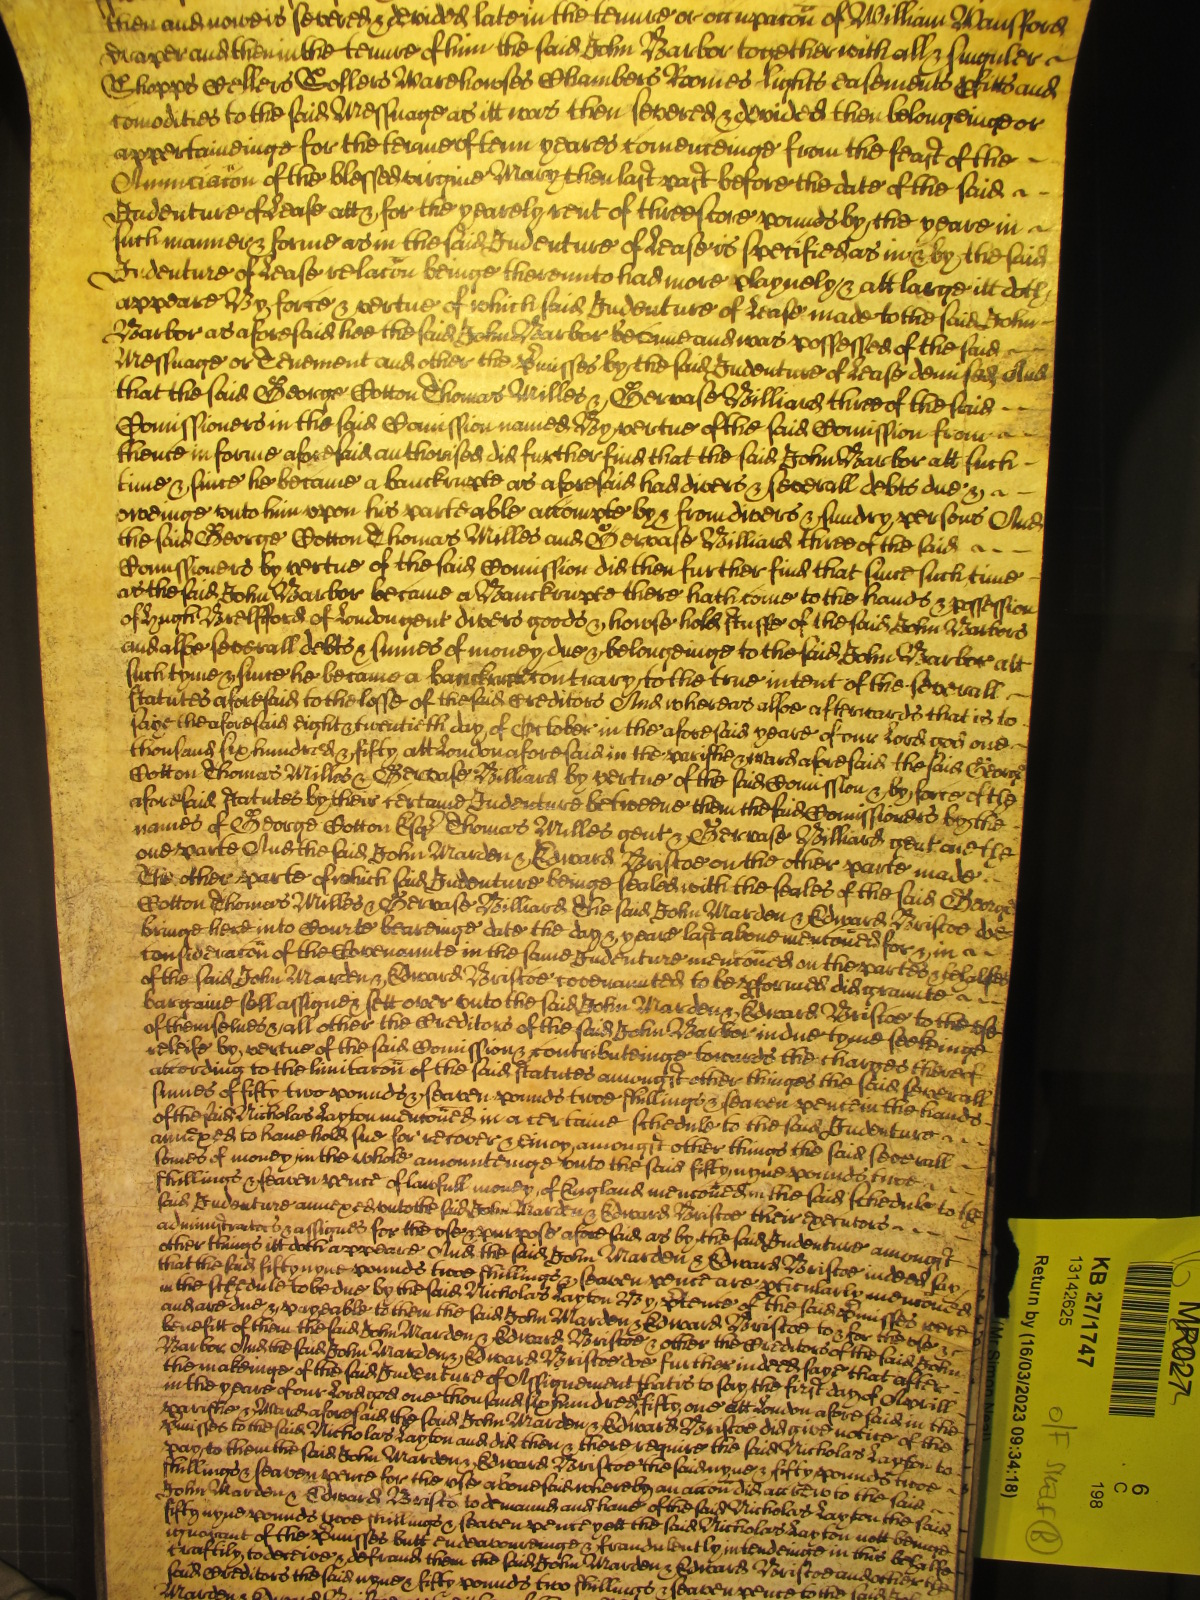 then and nowe is severed & devided late in the tenure or occupacõn of William Mansford
draper and then in the tenure of him the said John Barbor together with all & singuler
Shopps Sellers Sollers Warehowses Chambers Roomes lights easements and
comodities to the said Messuage as itt was then severed & devided then belongeinge or
appertaineinge for the terme of tenn yeares comenceinge from the feast of the
Anunciacõn of the blessed virgine Mary then last past before the date of the said
Indenture of Lease att & for the yearely rent of threescore pounds by the yeare in
such manner & forme as in the said Indenture of Lease is specified as in & by the said
Indenture of Lease relacõn beinge thereunto had more playnely & att large itt doth
appeare By force & vertue of which said Indenture of Lease made to the said John
Barbor as aforesaid hee the said John Barbor became and was possessed of the said
Messuage or Tenement and other the Pmisses by the said Indenture of Lease demised And
that the said George Cotton Thomas Milles & Gervase Billiard three of the said
Comissioners in the said Comission named By vertue of the said Comission from
thence in forme aforesaid authorised did further find that the said John Barbor att such
time & since he became a banckrupte as aforesaid had divers & severall debts due &
oweinge unto him upon his parteable accompte by & from divers & sundry persons And
the said George Cotton Thomas Milles and Gervase Billiard three of the said
Comissioners by vertue of the said Comission did then further find that since such time
as the said John Barbor became a Banckrupte there hath come to the hands & possession
of Hugh Brelfford of London gent divers goods & howsehold stuffe of the said John Barbors
and alsoe severall debts & summes of money due & belongeinge to the said John Barbor att
such tyme & since he became a banckrupt contrary to the true intent of the severall
statutes aforesaid to the losse of the said Creditors And whereas alsoe afterwards that is to
saye the aforesaid eight & twentieth day of October in the aforesaid yeare of our Lord god one
thousand six hundred & fifty att London aforesaid in the parishe & ward aforesaid the said George
Cotton Thomas Milles & Gervase Billiard by vertue of the said Comission & by force of the
aforesaid statutes by their certaine Indenture betweene them the said Comissioners by the
names of George Cotton Esqr Thomas Milles gent & Gervase Billiard gent on the
one parte And the said John Marden & Edward Briscoe on the other parte made
The other parte of which said Indenture beinge sealed with the seales of the said George
Cotton Thomas Milles & Gervase Billiard the said John Marden & Edward Briscoe doe
bringe here into Courte beareinge date the day & yeare last above mencõned for & in
consideracõn of the Covenannte in the same Indenture mencõned on the partes & behalfes
of the said John Marden & Edward Briscoe covenanted to be pformed did graunte
bargaine sell assigne & sett over unto the said John Marden & Edward Briscoe to the use
of themselves & all other the Creditors of the said John Barbor in due tyme seekeinge
releife by vertue of the said Comission & contributeinge towards the charges thereof
according to the limitacõn of the said statutes amongst other thinges the said severall
summes of fifty two pounds & seaven pounds twoe shillings & seaven pence in the hands
of the said Nicholas Layton mencõned in a certaine schedule to the said Indenture
annexed to have hold sue for recover & enioy amongst other things the said severall
somes of money in the whole amounteinge unto the said fifty nyne pounds twoe
shillings & seaven pence of lawfull money of England mencõned in the said schedule to the
said Indenture annexed unto the said John Marden & Edward Briscoe their executors
administrators & assignes for the use & purpose aforesaid as by the said Indenture amongst
other things itt doth appeare And the said John Marden & Edward Briscoe indeed say
that the said fifty nyne pounds twoe shillings & seaven pence are pticularly mencõned
in the schedule to be due by the said Nicholas Layton By ptence of the said Pmisses were
and are due & payeable to them the said John Marden & Edward Briscoe to & for the use &
benefitt of them the said John Marden & Edward Briscoe & other the Creditors of the said John
Barbor And the said John Marden & Edward Briscoe doe further indeed saye that after
the makeinge of the said Indenture of Assignement that is to say the first day of Aprill
in the yeare of our Lord god one thousand six hundred fifty one att London aforesaid in the
parishe & Ward aforesaid the said John Marden & Edward Briscoe did give notice of the
Pmisses to the said Nicholas Layton and did then & there require the said Nicholas Layton to
pay to them the said John Marden & Edward Briscoe the said nyne & fifty pounds twoe
shillings & seaven pence for the use abovesaid whereby an accõn did accrew to the said
John Marden & Edward Briscoe to demannd and have of the said Nicholas Layton the said
fifty nyne pounds twoe shillings & seaven pence yett the said Nicholas Layton nott beinge
ignorant of the Pmisses butt endeavoureinge & fraudulently intendeinge in this behalfe
craftily to deceive & defraud them the said John Marden & Edward Briscoe and other the
said Creditors the said nyne & fifty pounds two shillings & seaven pence to the said John
Marden & Edward
MR027
KB 27/1747
13142625
6
C
198
Return by (16/03/2023 09:34:18)